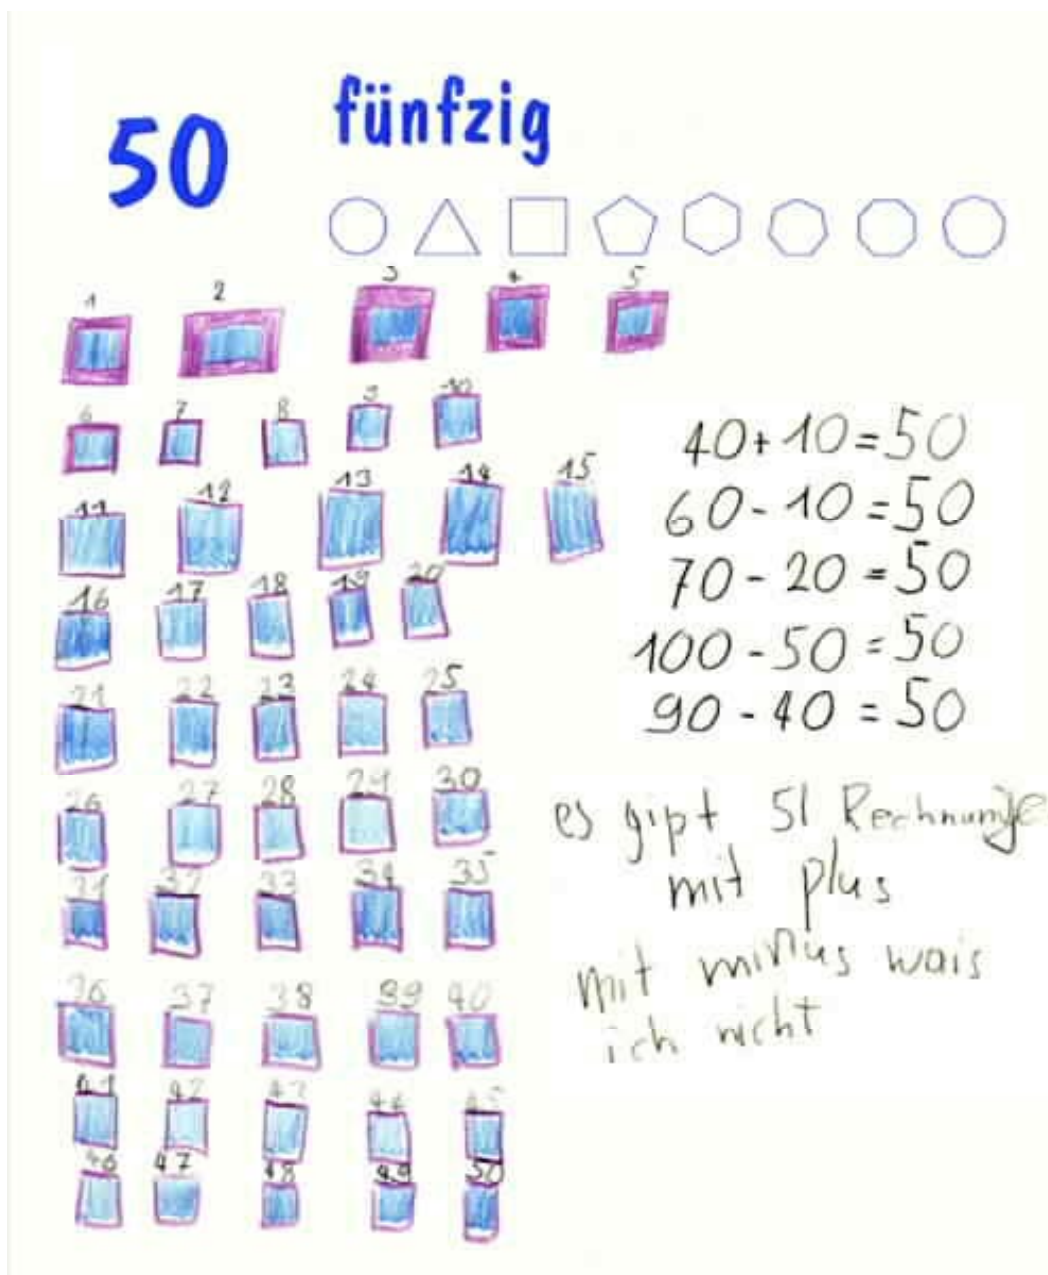 50 fünfzig
1 2 3 4 5
6 7 8 9 10
11 12 13 14 15
16 17 18 19 20
21 22 23 24 25
26 27 28 29 30
31 32 33 34 35
36 37 38 39 40
41 42 43 44 45
46 47 48 49 50
40+10=50
60-10=50
70-20=50
100-50=50
90-40=50
es gipt 51 Rechnunge
mit plus
mit minus wais
ich nicht